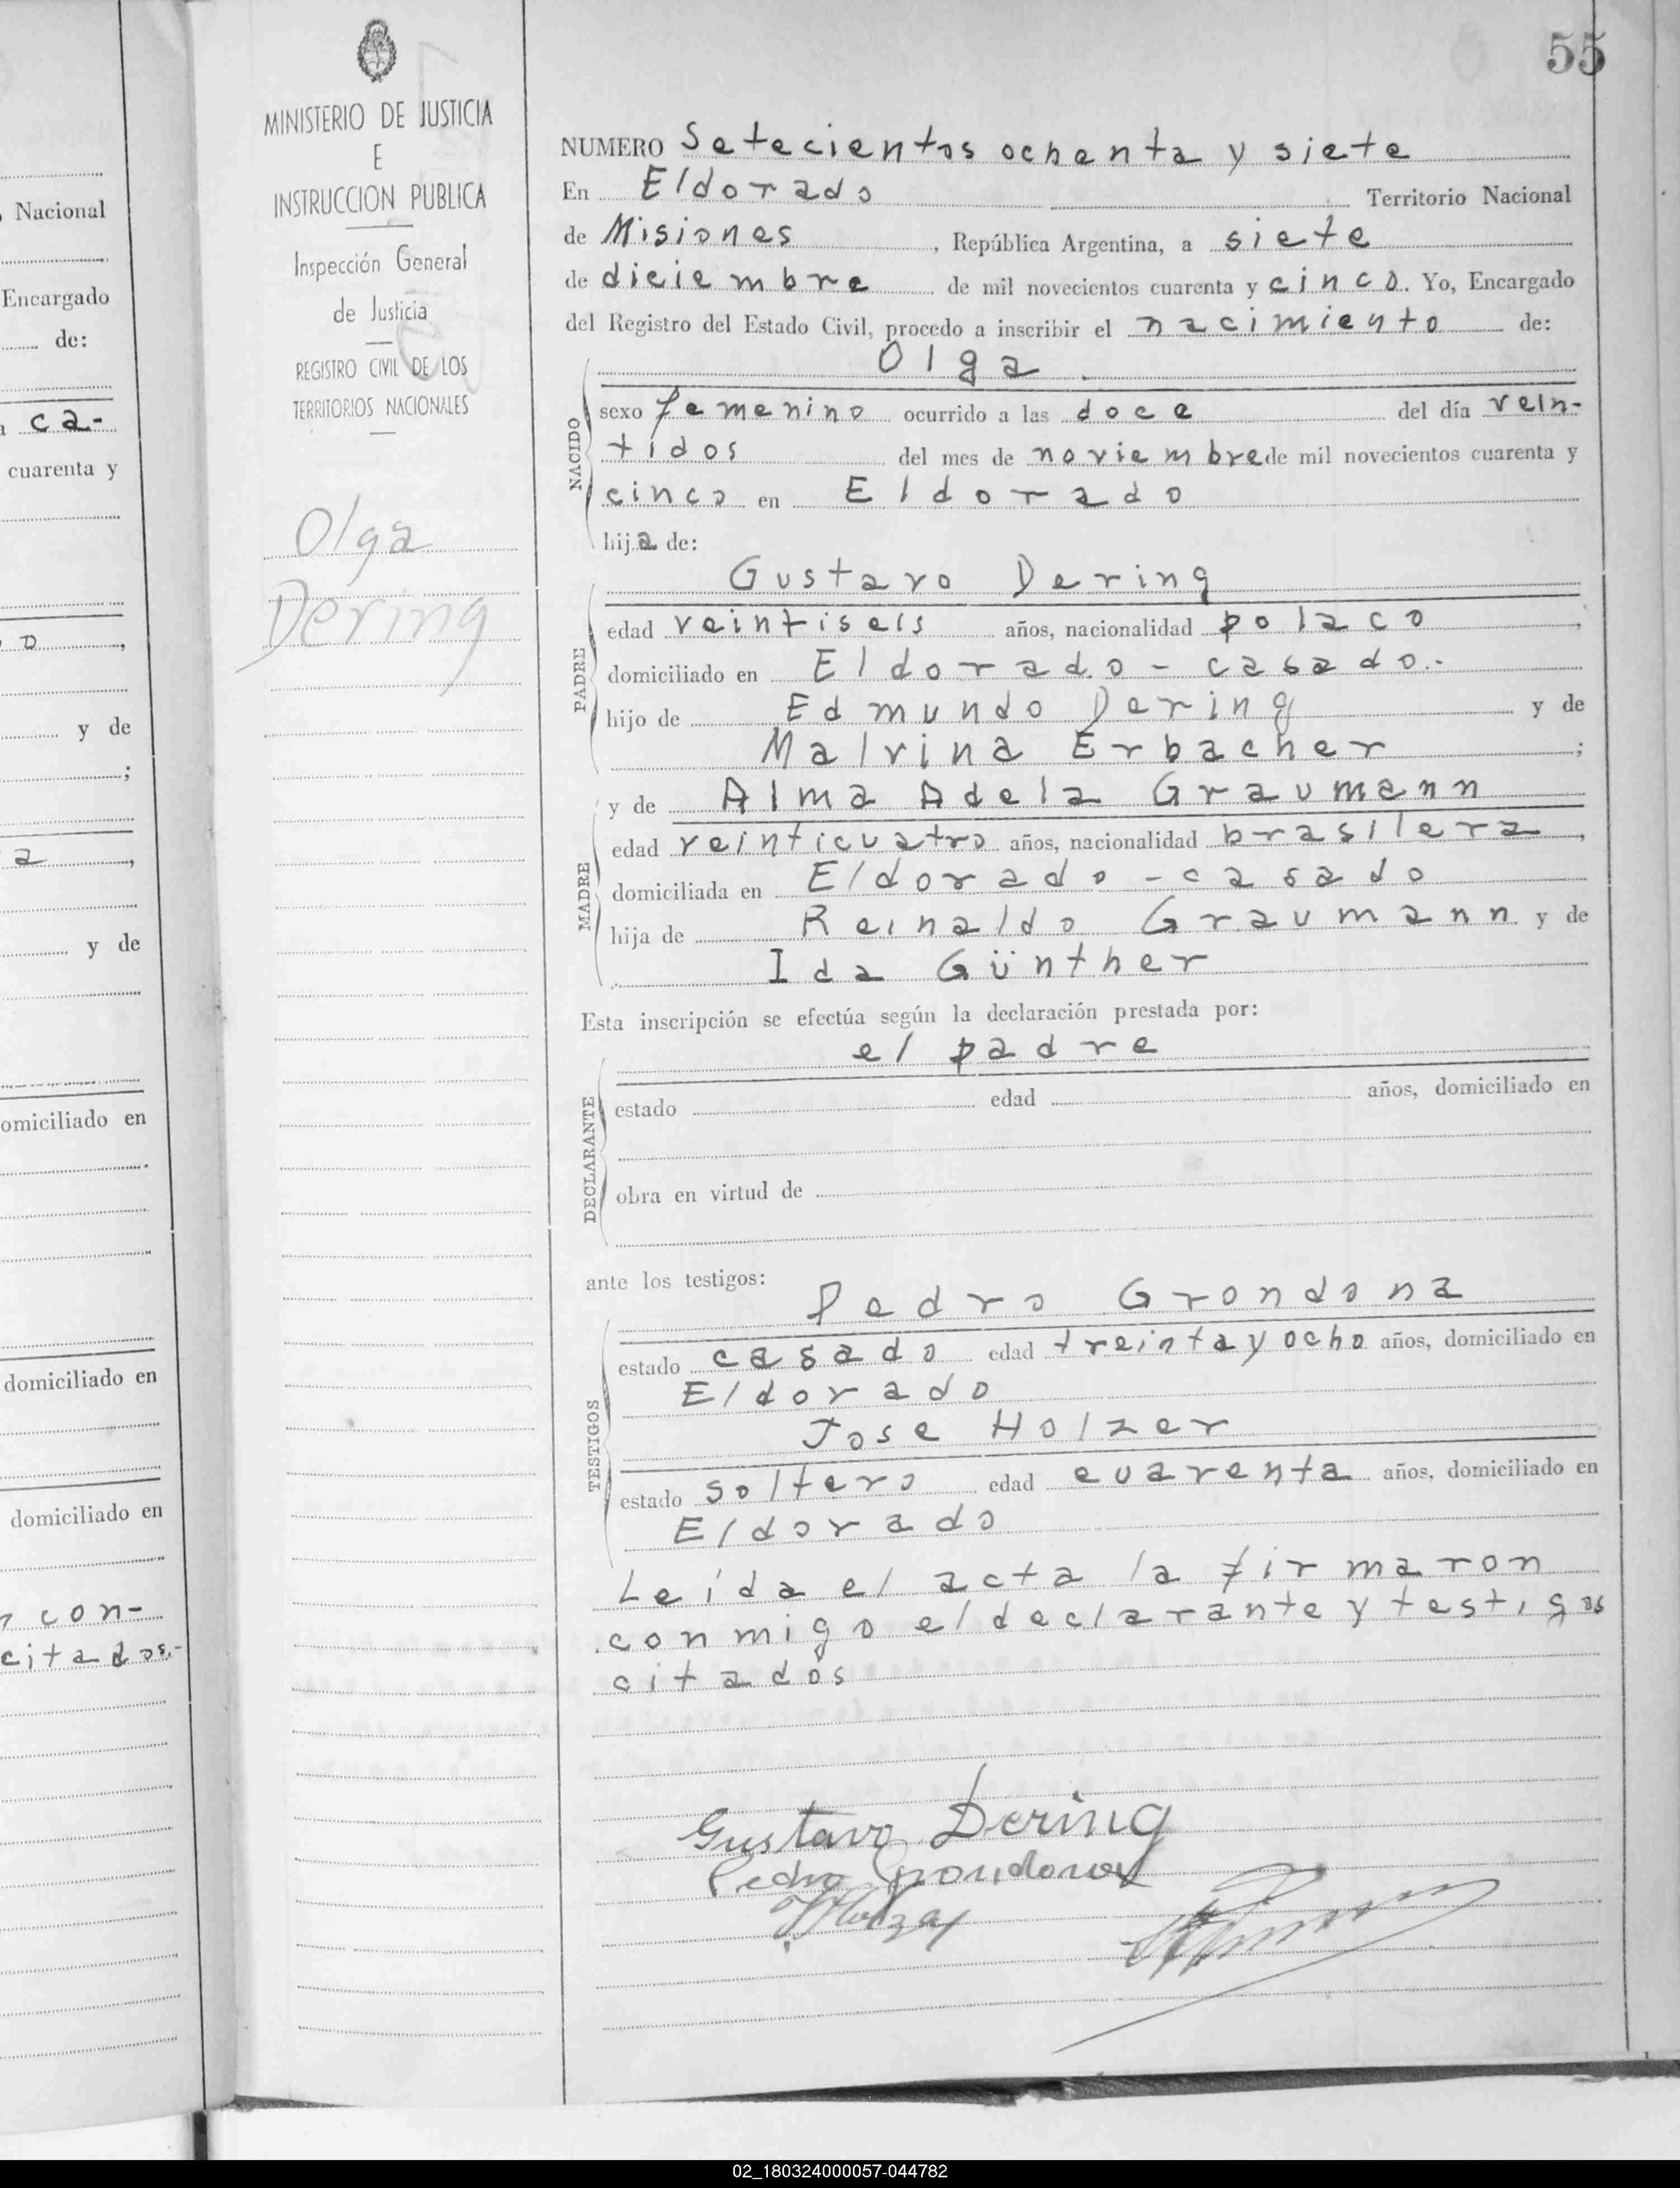 55
MINISTERIO DE JUSTICIA
E
INSTRUCCION PUBLICA
Inspección General
de Justicia
REGISTRO CIVIL DE LOS
TERRITORIOS NACIONALES
Olga
Dering
Nacional
Encargado
de:
ca-
cuarenta y
o,
y de
;
a,
y de
omiciliado en
domiciliado en
domiciliado en
con-
citados.-
NUMERO Setecientos ochenta y siete
En Eldorado Territorio Nacional
de Misiones, República Argentina, a siete
de diciembre de mil novecientos cuarenta y cinco. Yo, Encargado
del Registro del Estado Civil, procedo a inscribir el nacimiento de:
Olga.
NACIDO
sexo femenino ocurrido a las doce del día vein-
tidos del mes de noviembre de mil novecientos cuarenta y
cinco en Eldorado
hija de:
Gustavo Dering
PADRE
edad veintiseis años, nacionalidad polaco,
domiciliado en Eldorado - casado.-
hijo de Edmundo Dering y de
Malvina Erbacher;
y de Alma Adela Graumann
MADRE
edad veinticuatro años, nacionalidad brasilera,
domiciliada en Eldorado - casado
hija de Reinaldo Graumann y de
Ida Günther
Esta inscripción se efectúa según la declaración prestada por:
el padre
DECLARANTE
estado edad años, domiciliado en
obra en virtud de
ante los testigos:
Pedro Grondona
TESTIGOS
estado casado edad treinta y ocho años, domiciliado en
Eldorado
Jose Holzer
estado soltero edad cuarenta años, domiciliado en
Eldorado
Leída el acta la firmaron
conmigo el declarante y testigos
citados
Gustavo Dering
Pedro Grondona
02_180324000057-044782